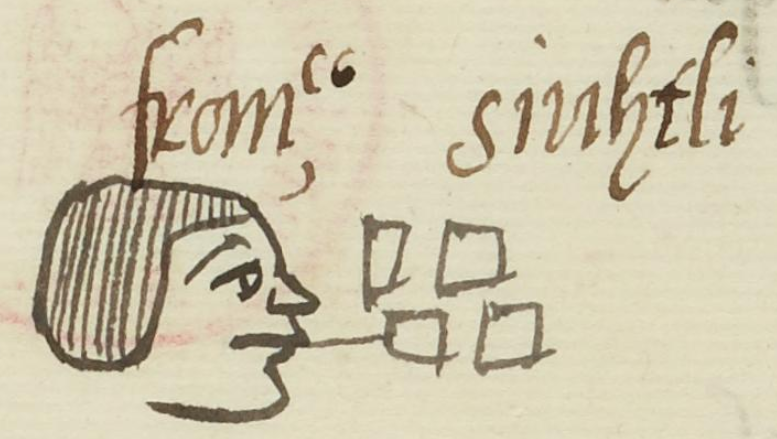 franco siuhtli